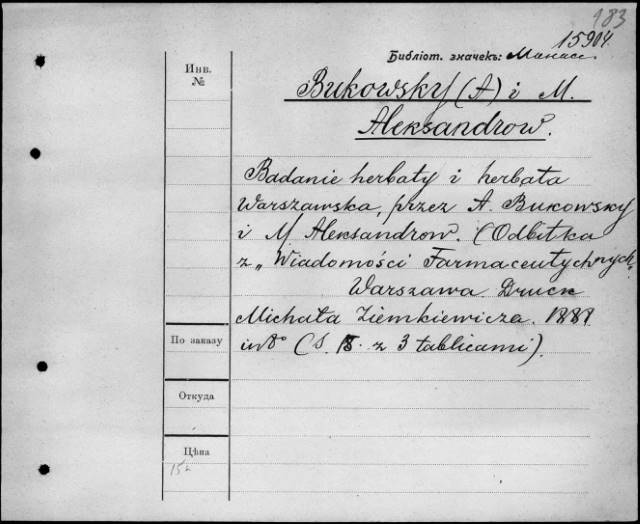 183
15904.
Библіот. значекъ:
Инв.
№
Bukowsky (A) i M.
Aleksandrow.
Badanie herbaty i herbata
Warszawska, przez A. Bukowsky
i M. Aleksandrow. (Odbitka
z „Wiadomości Farmaceutycznych"
Warszawa. Druck
Michała Ziemkiewicza. 1888.
in 8° (S. 15. z 3 tablicami).
По заказу
Откуда
Цѣна